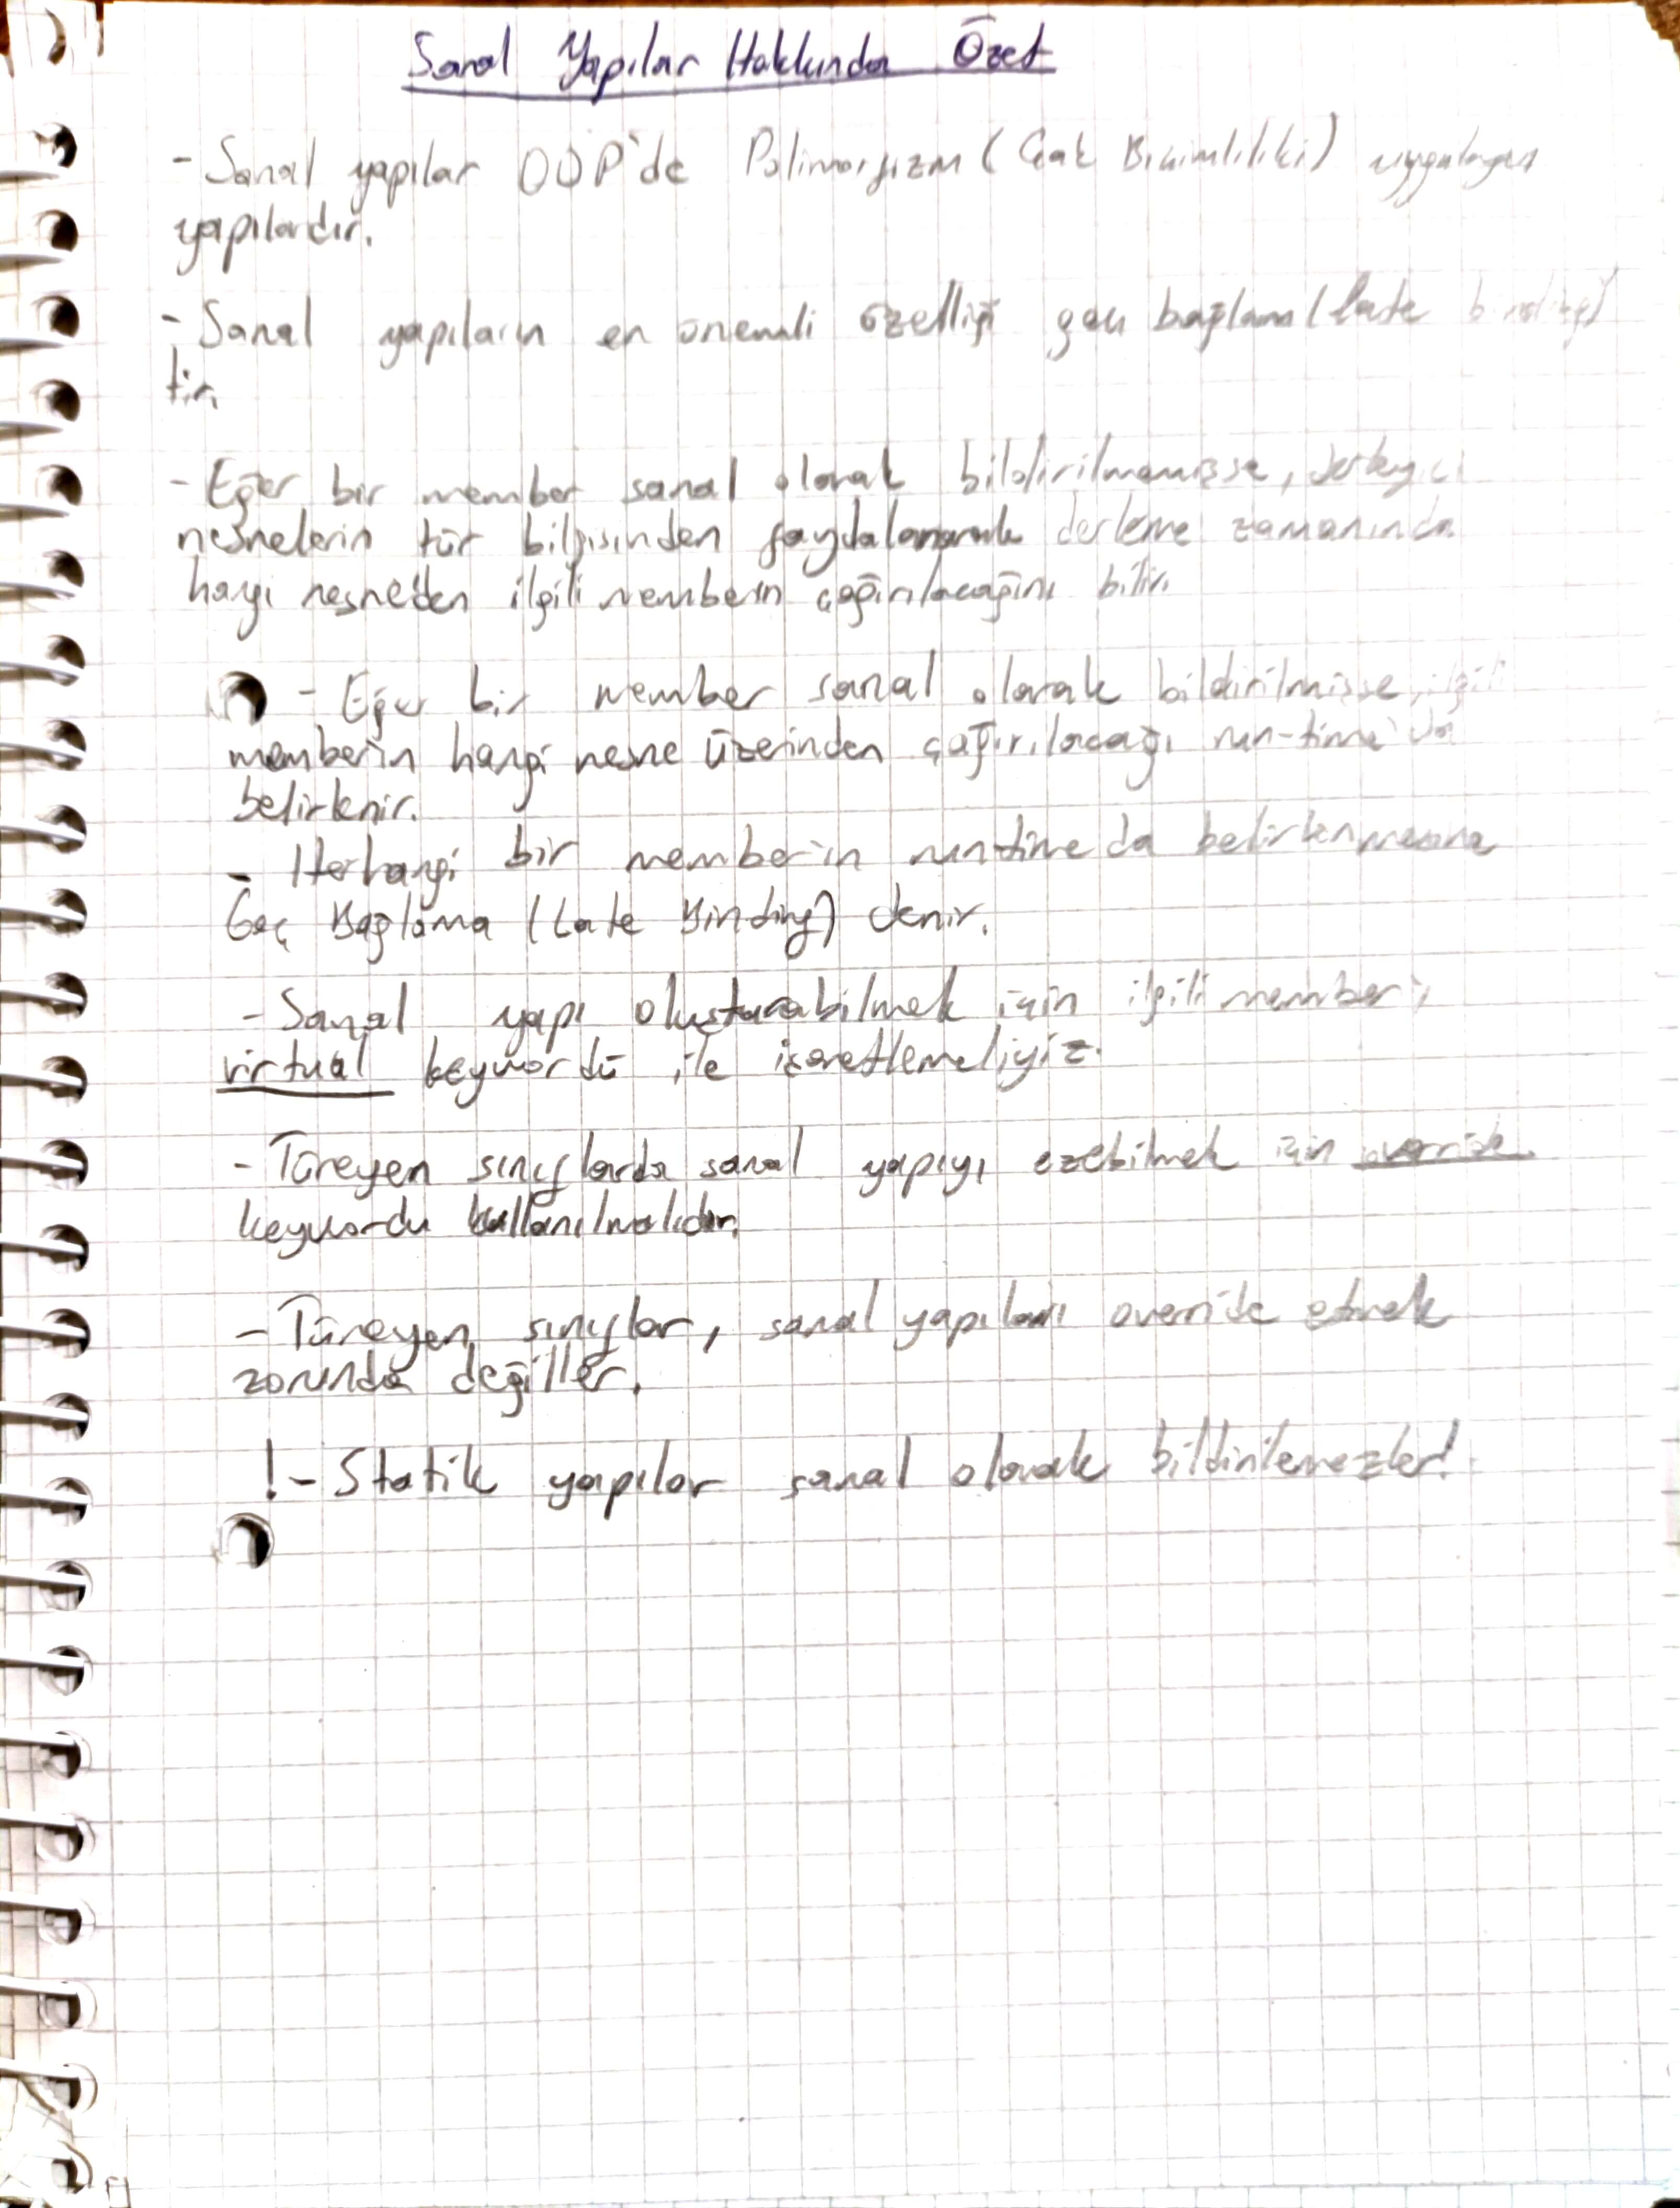 Sanal Yapılar Hakkında Özet
- Sanal yapılar OOP'de Polimorfizm (Çok Biçimlilik) uygulayan
yapılardır.
- Sanal yapıların en önemli özelliği geç bağlama (late binding)
tir.
- Eğer bir member sanal olarak bildirilmemişse, derleyici
nesnelerin tür bilgisinden faydalanarak derleme zamanında
hangi nesneden ilgili memberın çağırılacağını bilir.
- Eğer bir member sanal olarak bildirilmişse, ilgili
member'ın hangi nesne üzerinden çağırılacağı run-time'da
belirlenir.
- Herhangi bir member'ın runtime da belirlenmesine
Geç Bağlama (Late Binding) denir.
- Sanal yapı oluşturabilmek için ilgili member'ı
virtual keywordü ile işaretlemeliyiz.
- Türeyen sınıflarda sanal yapıyı ezebilmek için override
keywordu kullanılmalıdır.
- Türeyen sınıflar, sanal yapıları override etmek
zorunda değiller.
!- Statik yapılar sanal olarak bildirilemezler!